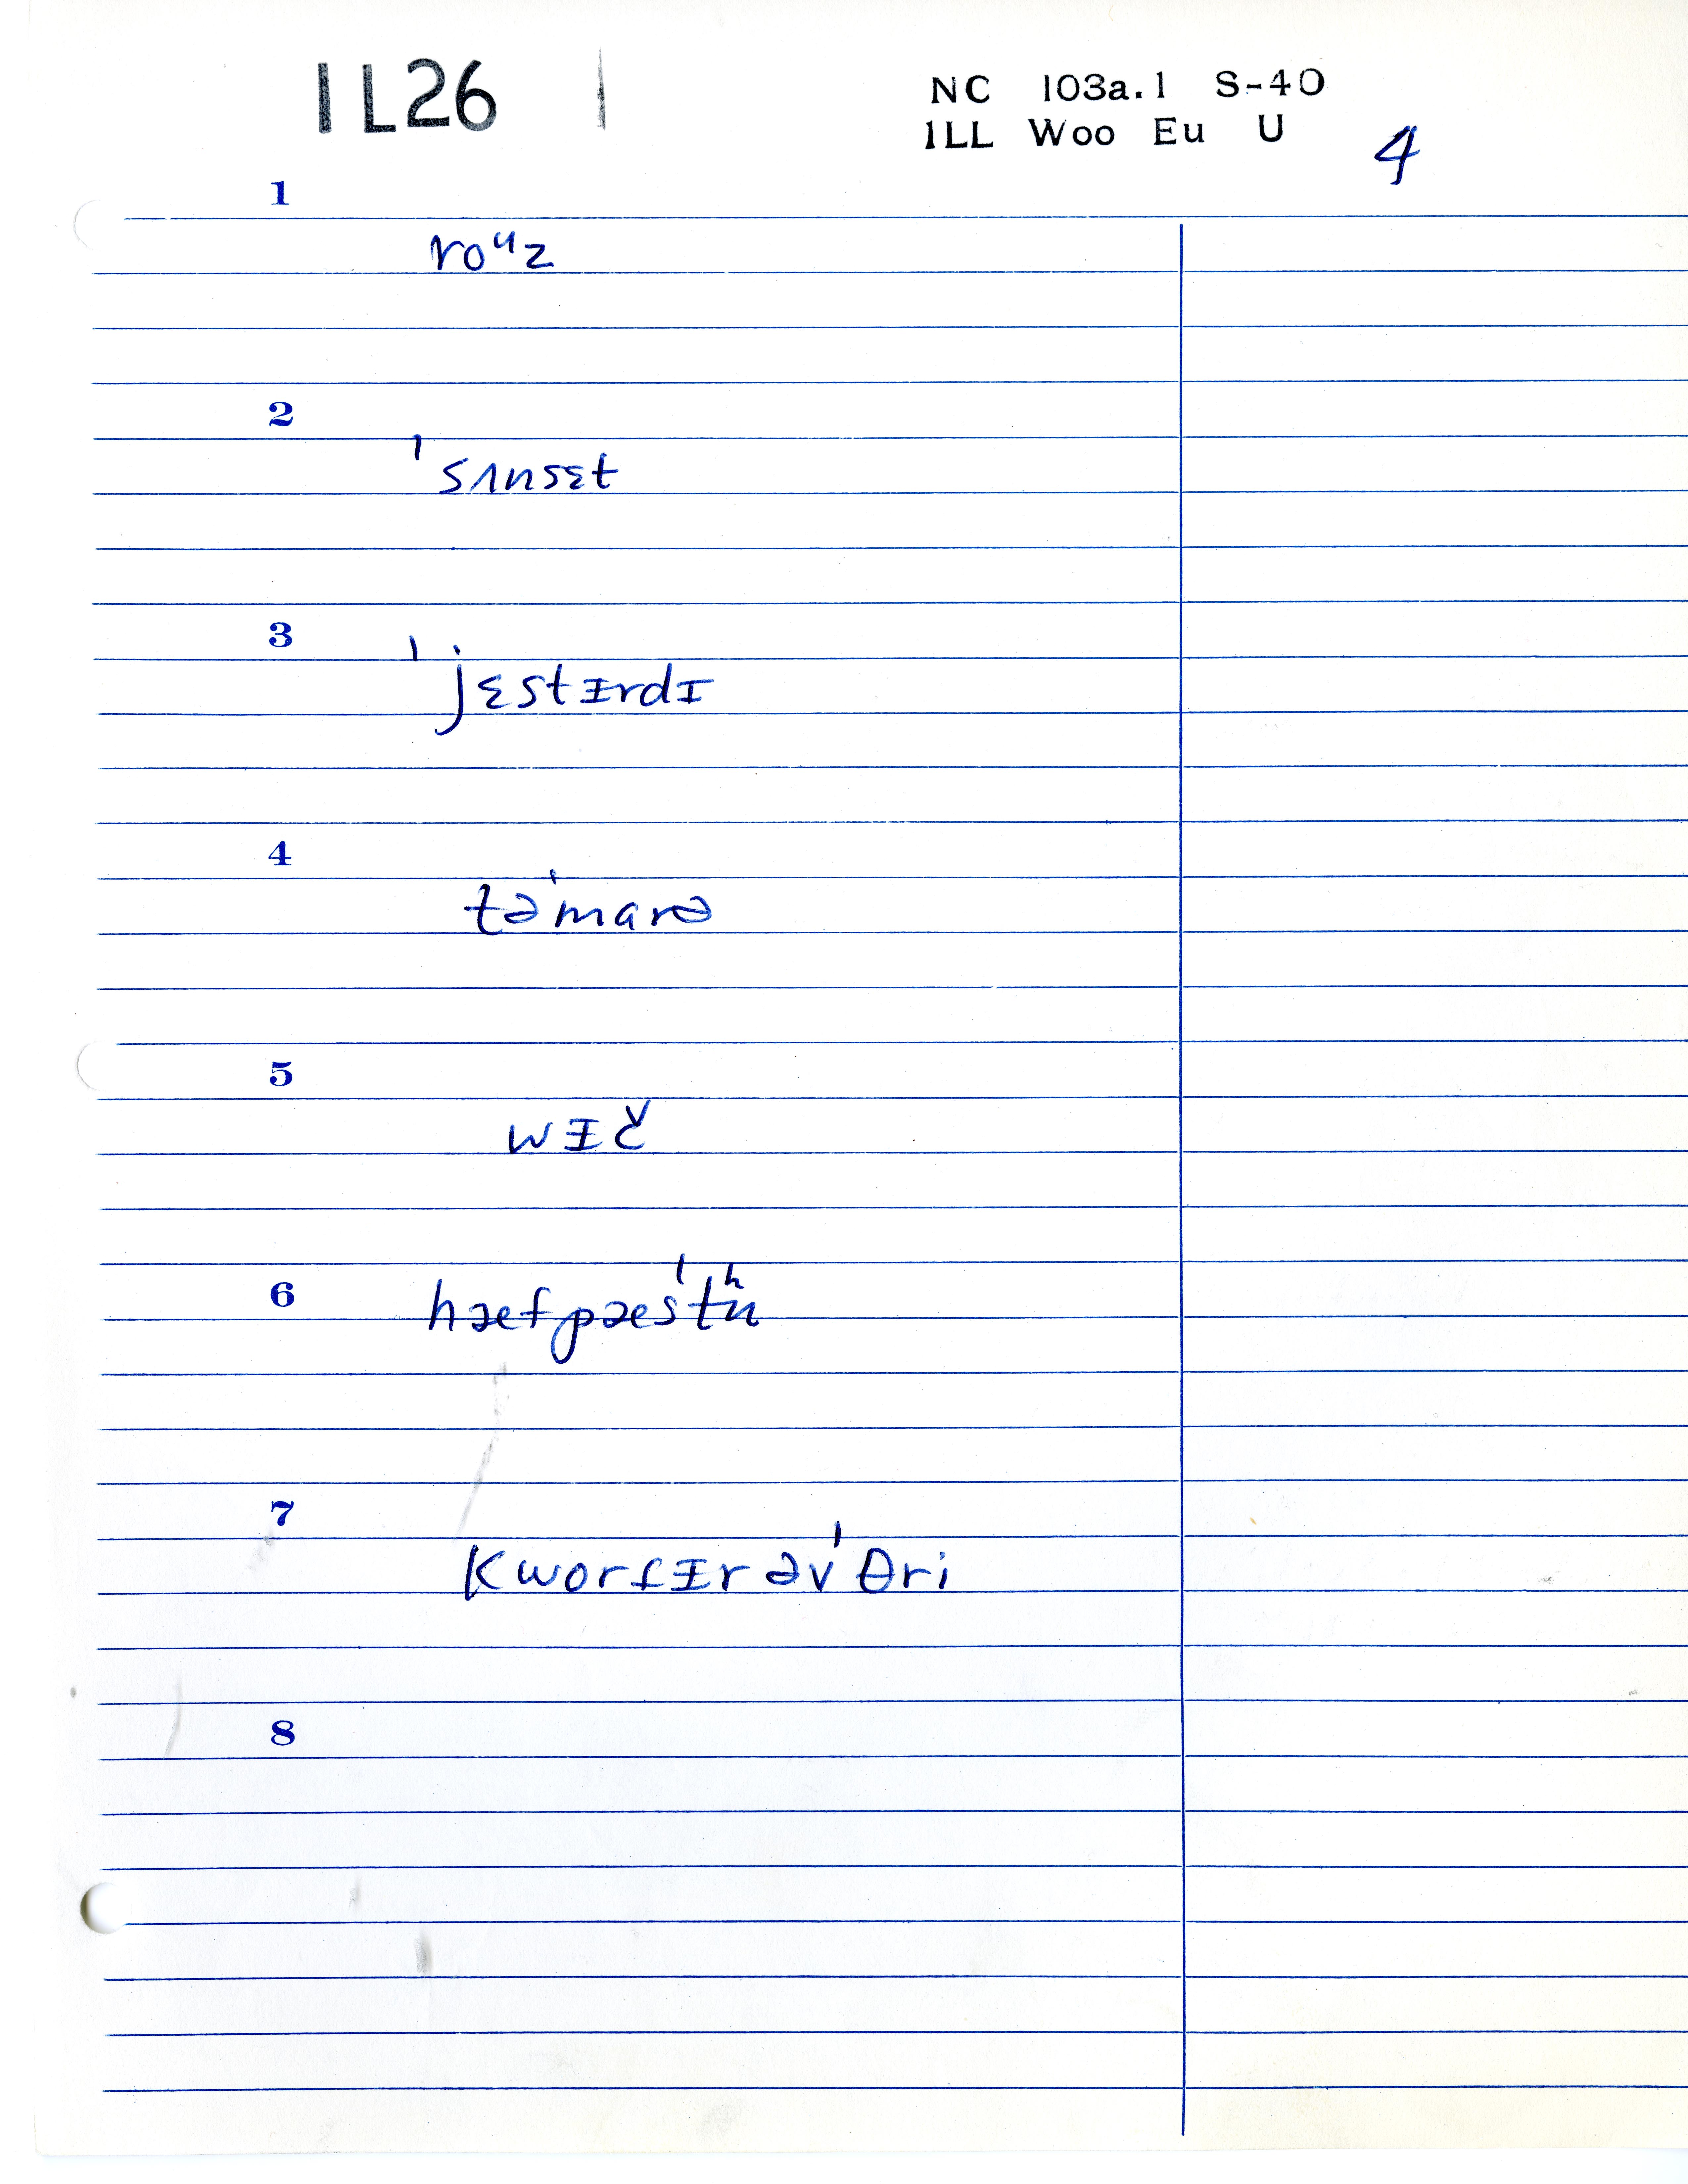 IL26 1
NC 103a.1 S-40
ILL Woo Eu U
4
1
roᵘz
2
ˈsʌnsɛt
3
ˈjɛstɨrdɪ
4
təˈmarə
5
wɨč
6
hæfpæsˈtʰn
7
kworfɨr əvˈθri
8